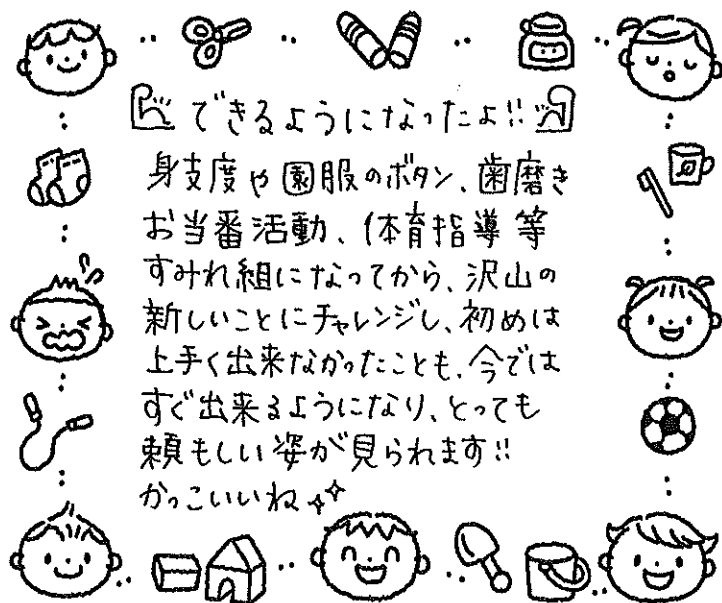 できるようになったよ!!
身支度や園服のボタン、歯磨き
お当番活動、体育指導等
すみれ組になってから、沢山の
新しいことにチャレンジし、初めは
上手く出来なかったことも、今では
すぐ出来るようになり、とっても
頼もしい姿が見られます!!
かっこいいね